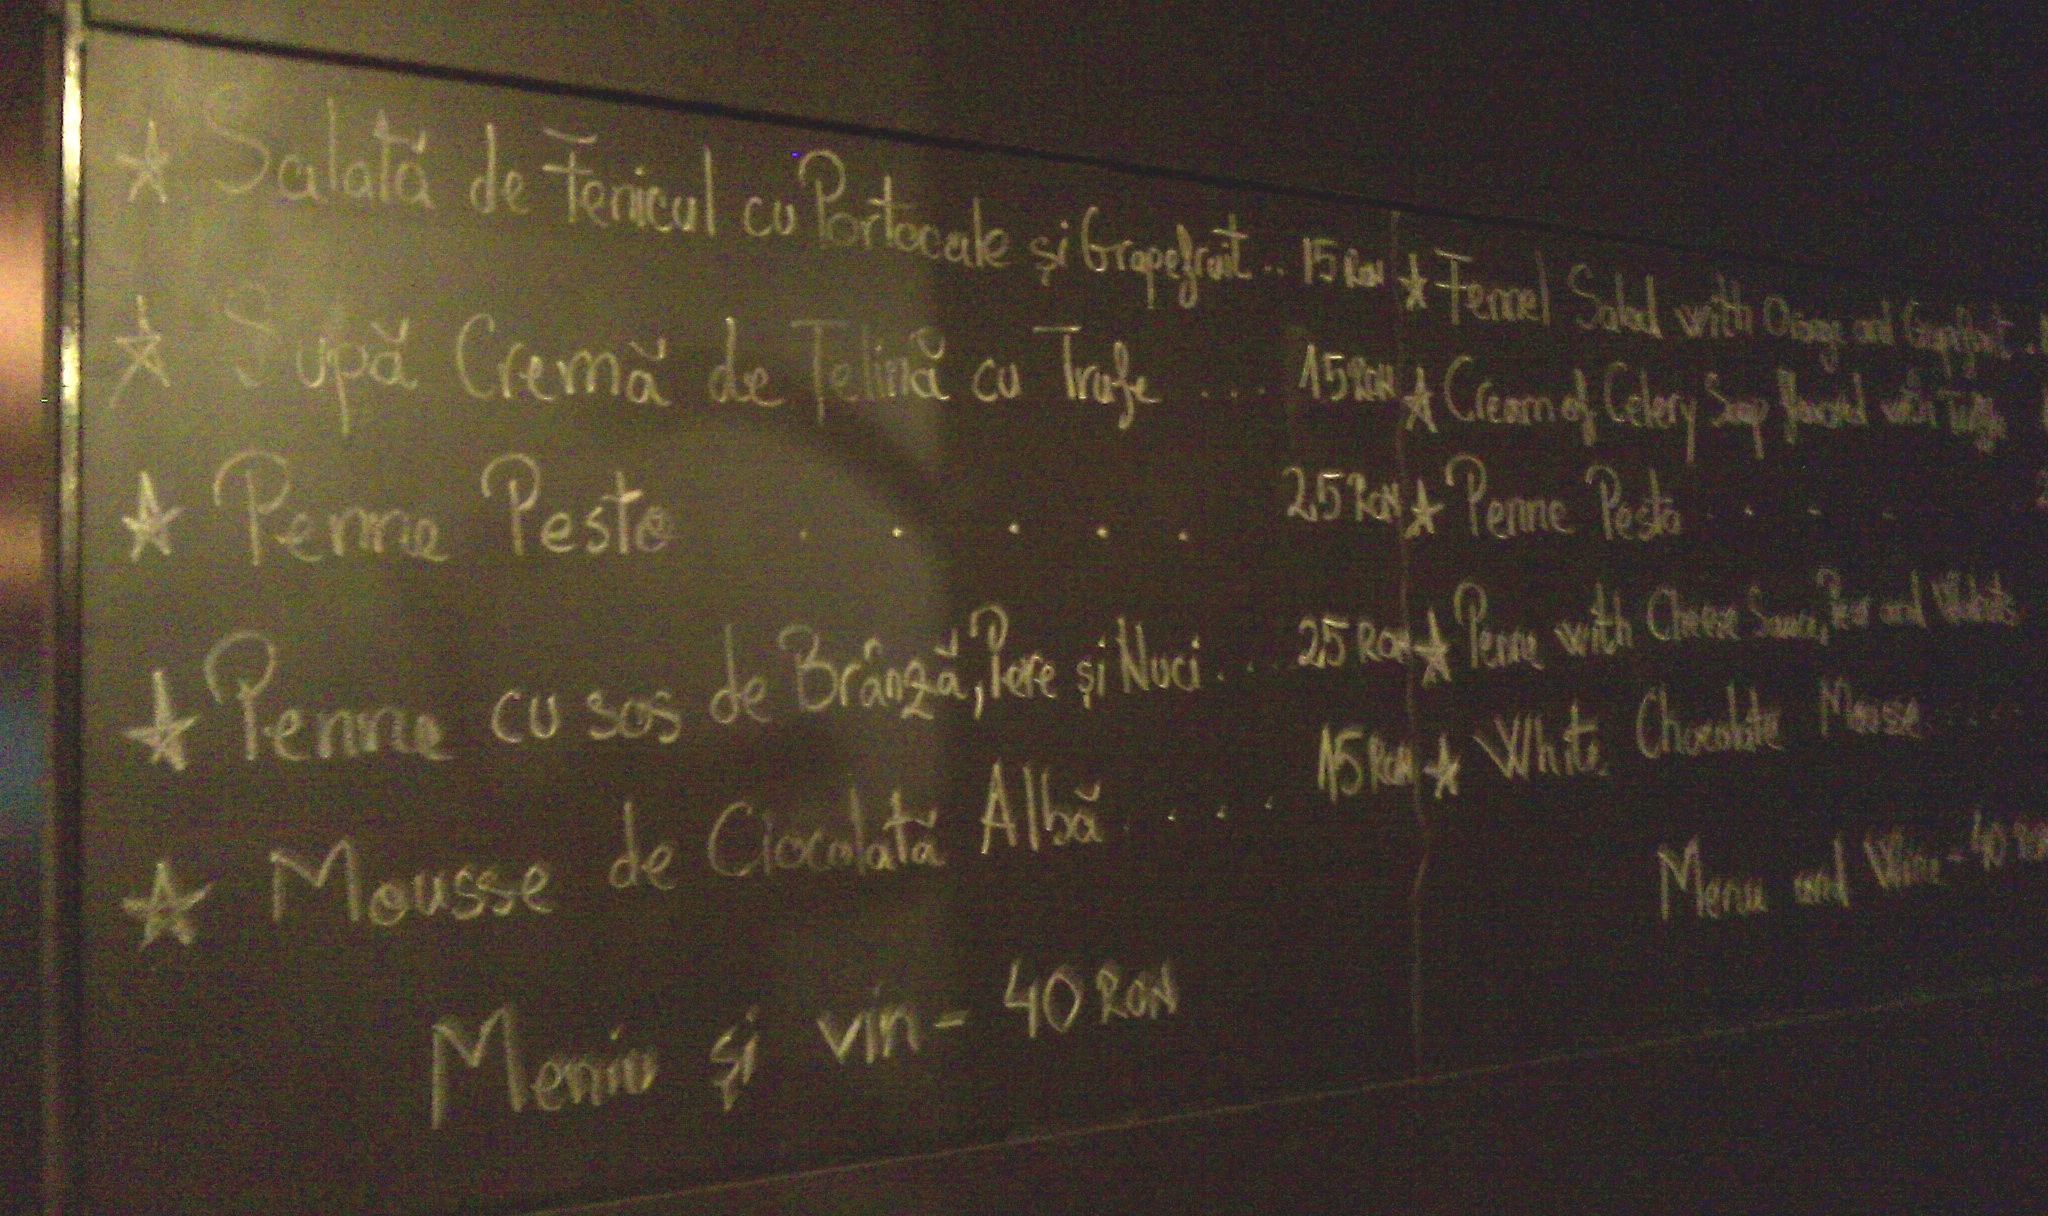 Salată de Fenicul cu Portocale și Grapefruit .. 15 RON
Supă Cremă de Țelină cu Trufe .... 15 RON
Penne Pesto ..... 25 RON
Penne cu sos de Brânză, Pere și Nuci ... 25 RON
Mousse de Ciocolată Albă .... 15 RON
Meniu și vin - 40 RON
Fennel Salad with Orange and Grapefruit .
Cream of Celery Soup flavored with Truffle
Penne Pesto ....
Penne with Cheese Sauce, Pear and Walnuts
White Chocolate Mousse ....
Menu and Wine - 40 RON